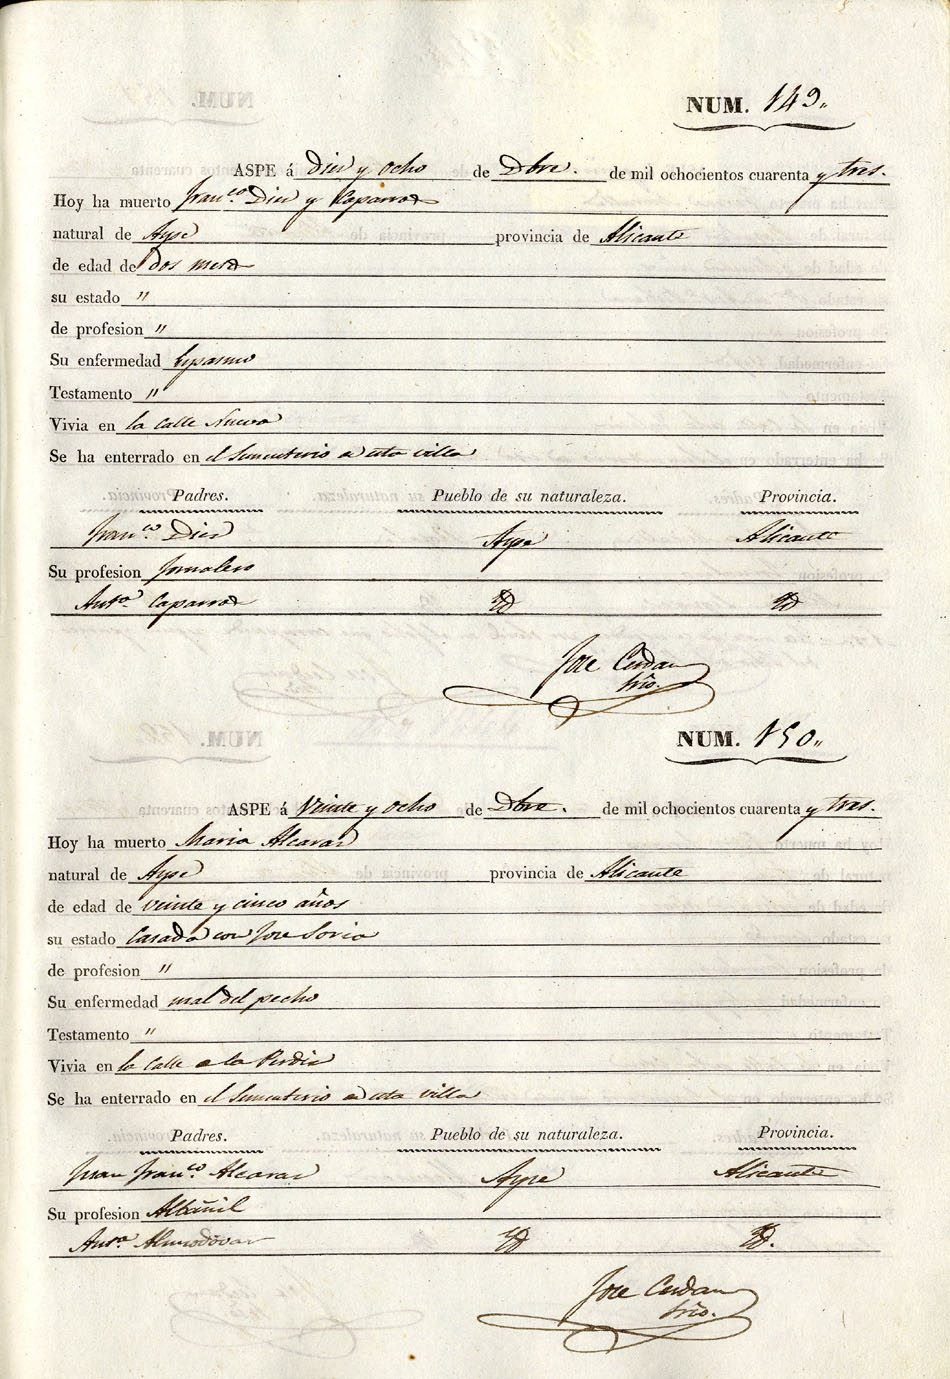 NUM. 149.,
ASPE á Diez y ocho de Dbre. de mil ochocientos cuarenta y tres.
Hoy ha muerto Fran.co Diez y Caparros
natural de Aspe provincia de Alicante
de edad de dos meses
su estado "
de profesion "
Su enfermedad Espasmo
Testamento "
Vivia en la calle Nueva
Se ha enterrado en el Sementerio de esta villa
Padres. Pueblo de su naturaleza. Provincia.
Fran.co Diez Aspe Alicante
Su profesion Jornalero
Ant.a Caparros Id Id
Jose Cerdan
Srio.
NUM. 150.,
ASPE á Veinte y ocho de Dbre. de mil ochocientos cuarenta y tres.
Hoy ha muerto Maria Alcaraz
natural de Aspe provincia de Alicante
de edad de veinte y cinco años
su estado Casada con Jose Soria
de profesion "
Su enfermedad mal del pecho
Testamento "
Vivia en la Calle de la Perdiz
Se ha enterrado en el Sementerio de esta villa
Padres. Pueblo de su naturaleza. Provincia.
Juan Fran.co Alcaraz Aspe Alicante
Su profesion Albañil
Ant.a Almodóvar Id Id.
Jose Cerdan
Srio.